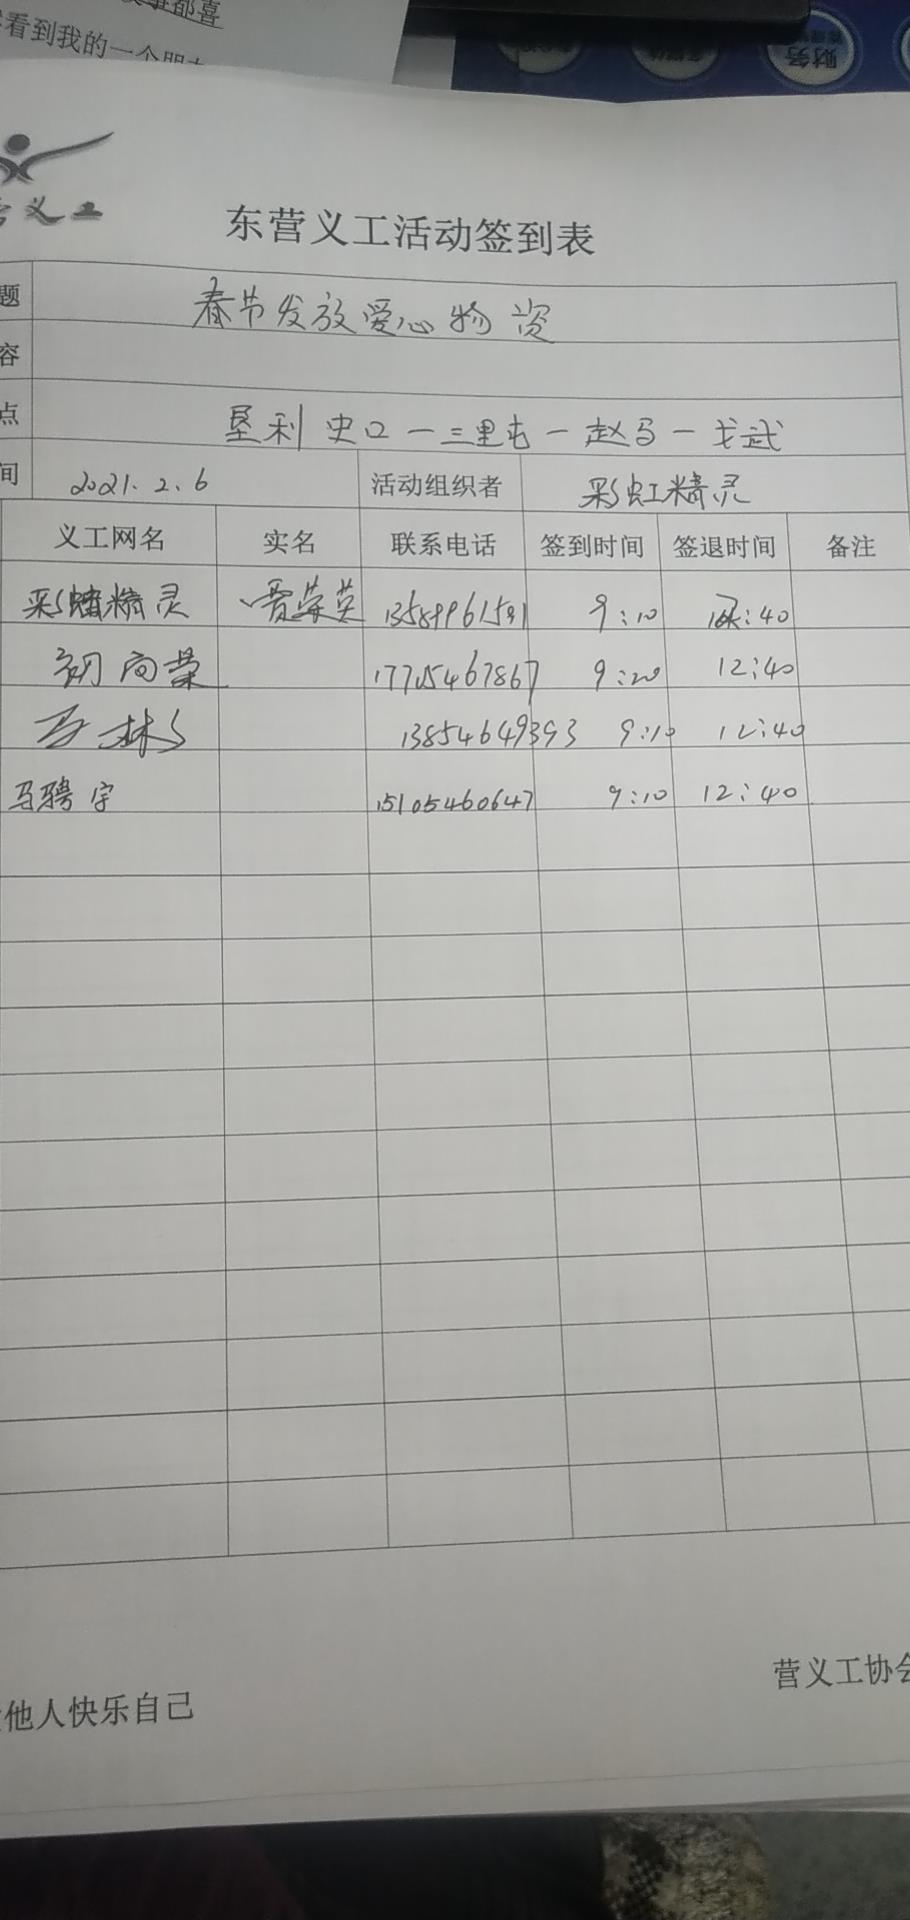 看到我的一个朋
财务
营义工
东营义工活动签到表
题 春节发放爱心物资
容
点 垦利 史口一三里屯一赵马一戈武
间 2021.2.6 活动组织者 彩虹精灵
义工网名 实名 联系电话 签到时间 签退时间 备注
彩虹精灵 荣英 13589961591 9:10 12:40
初向荣 17705467867 9:20 12:40
13854649393 9:10 12:40
马骋宇 15105460647 9:10 12:40
营义工协会
他人快乐自己